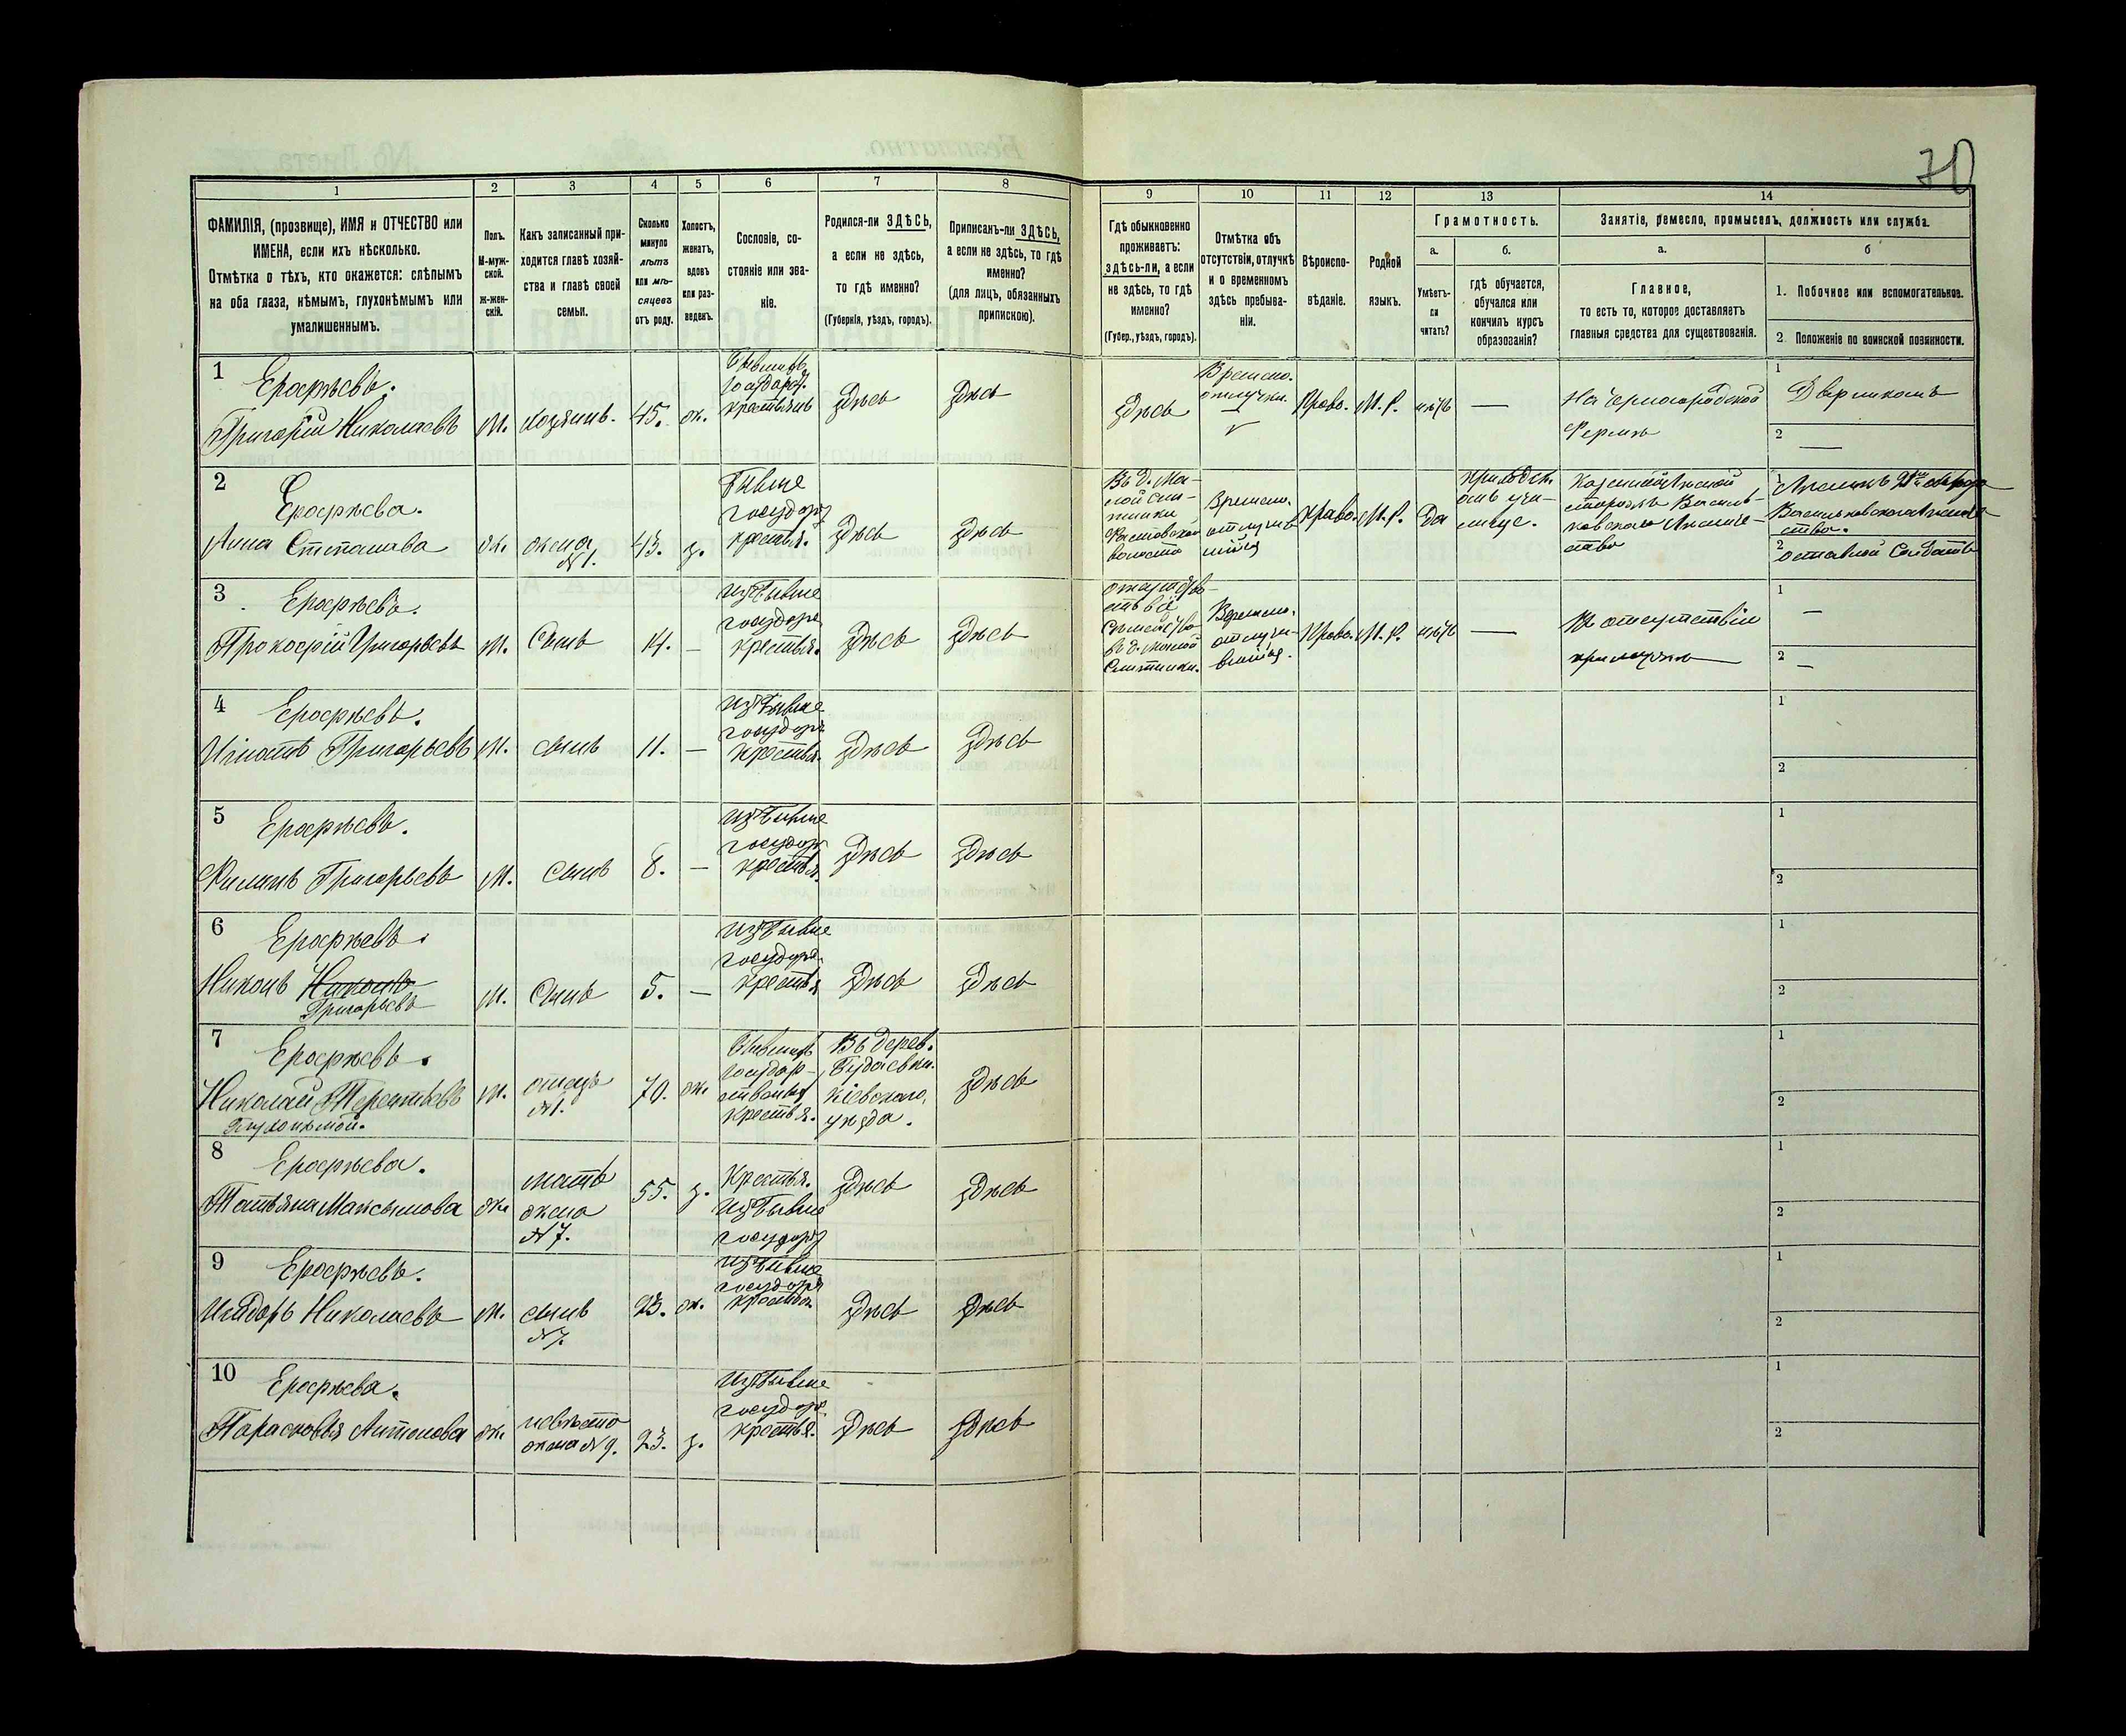 70
1 2 3 4 5 6 7 8 9 10 11 12 13 14
ФАМИЛІЯ, (прозвище), ИМЯ и ОТЧЕСТВО или
ИМЕНА, если ихъ нѣсколько.
Отмѣтка о тѣхъ, кто окажется: слѣпымъ
на оба глаза, нѣмымъ, глухонѣмымъ или
умалишеннымъ.
Полъ.
М-муж-
ской.
ж-жен-
скій.
Какъ записанный при-
ходится главѣ хозяй-
ства и главѣ своей
семьи.
Сколько
минуло
лѣтъ
или мѣ-
сяцевъ
отъ роду.
Холостъ,
женатъ,
вдовъ
или раз-
веденъ.
Сословіе, со-
стояніе или зва-
ніе.
Родился-ли ЗДѢСЬ,
а если не здѣсь,
то гдѣ именно?
(Губернія, уѣздъ, городъ).
Приписанъ-ли ЗДѢСЬ,
а если не здѣсь, то гдѣ
именно?
(для лицъ, обязанныхъ
припискою).
Гдѣ обыкновенно
проживаетъ:
здѣсь-ли, а если
не здѣсь, то гдѣ
именно?
(Губер., уѣздъ, городъ).
Отмѣтка объ
отсутствіи, отлучкѣ
и о временномъ
здѣсь пребыва-
ніи.
Вѣроиспо-
вѣданіе.
Родной
языкъ.
Грамотность.
а.
Умѣетъ-
ли
читать?
б.
гдѣ обучается,
обучался или
кончилъ курсъ
образованія?
Занятіе, ремесло, промыселъ, должность или служба.
а.
Главное,
то есть то, которое доставляетъ
главныя средства для существованія.
б
1. Побочное или вспомогательное.
2. Положеніе по воинской повинности.
1
Ерофѣевъ.
Григорій Николаевъ
м.
хозяинъ.
45.
ж.
Бывшихъ
государ.
крестьянъ
здѣсь
здѣсь
здѣсь
Времено.
отлучки.
Право.
М. Р.
нѣтъ
—
Дворникомъ
2 —
2
Ерофѣева.
Анна Степанова
ж.
жена
№ 1.
43.
з.
Бывше
государ
крестья.
здѣсь
здѣсь
Въ д. Ма-
лой
волости
Времено.
Право.
М. Р.
Да
2 оставной Солдатъ
3
Ерофѣевъ.
Прокофій Григорьевъ
м.
Сынъ
14.
—
Изъ бывше
государ
крестья.
здѣсь
здѣсь
въ д. Малой
Времено.
Право.
М. Р.
нѣтъ
—
1 —
2 —
4
Ерофѣевъ.
Игнатъ Григорьевъ
м.
сынъ
11.
—
Изъ бывше
государ
крестья.
здѣсь
здѣсь
1
2
5
Ерофѣевъ.
Филипъ Григорьевъ
м.
сынъ
8.
—
Изъ бывше
государ
крестья.
здѣсь
здѣсь
1
2
6
Ерофѣевъ.
Никонъ
Григорьевъ
м.
Сынъ
5.
—
Изъ бывше
государ
крестья
здѣсь
здѣсь
1
2
7
Ерофѣевъ.
Николай Терентьевъ
Глухонѣмой.
м.
отецъ
№ 1.
70.
ж.
Бывшихъ
государ-
ственых
крестья.
Въ дерев.
Будаевки
Кіевскаго,
уѣзда.
здѣсь
1
2
8
Ерофѣева.
Татьяна Максымова
ж.
мать
жена
№ 7.
55.
з.
Крестья.
Изъ бывше
государ
здѣсь
здѣсь
1
2
9
Ерофѣевъ.
Исидоръ Николаевъ
м.
сынъ
№ 7.
23.
ж.
Изъ бывше
государ
крестья
здѣсь
здѣсь
1
2
10
Ерофѣева.
Парасковья Антонова
ж.
невѣста
жена № 9.
23.
з.
Изъ бывше
государ.
крестья.
здѣсь
здѣсь
1
2